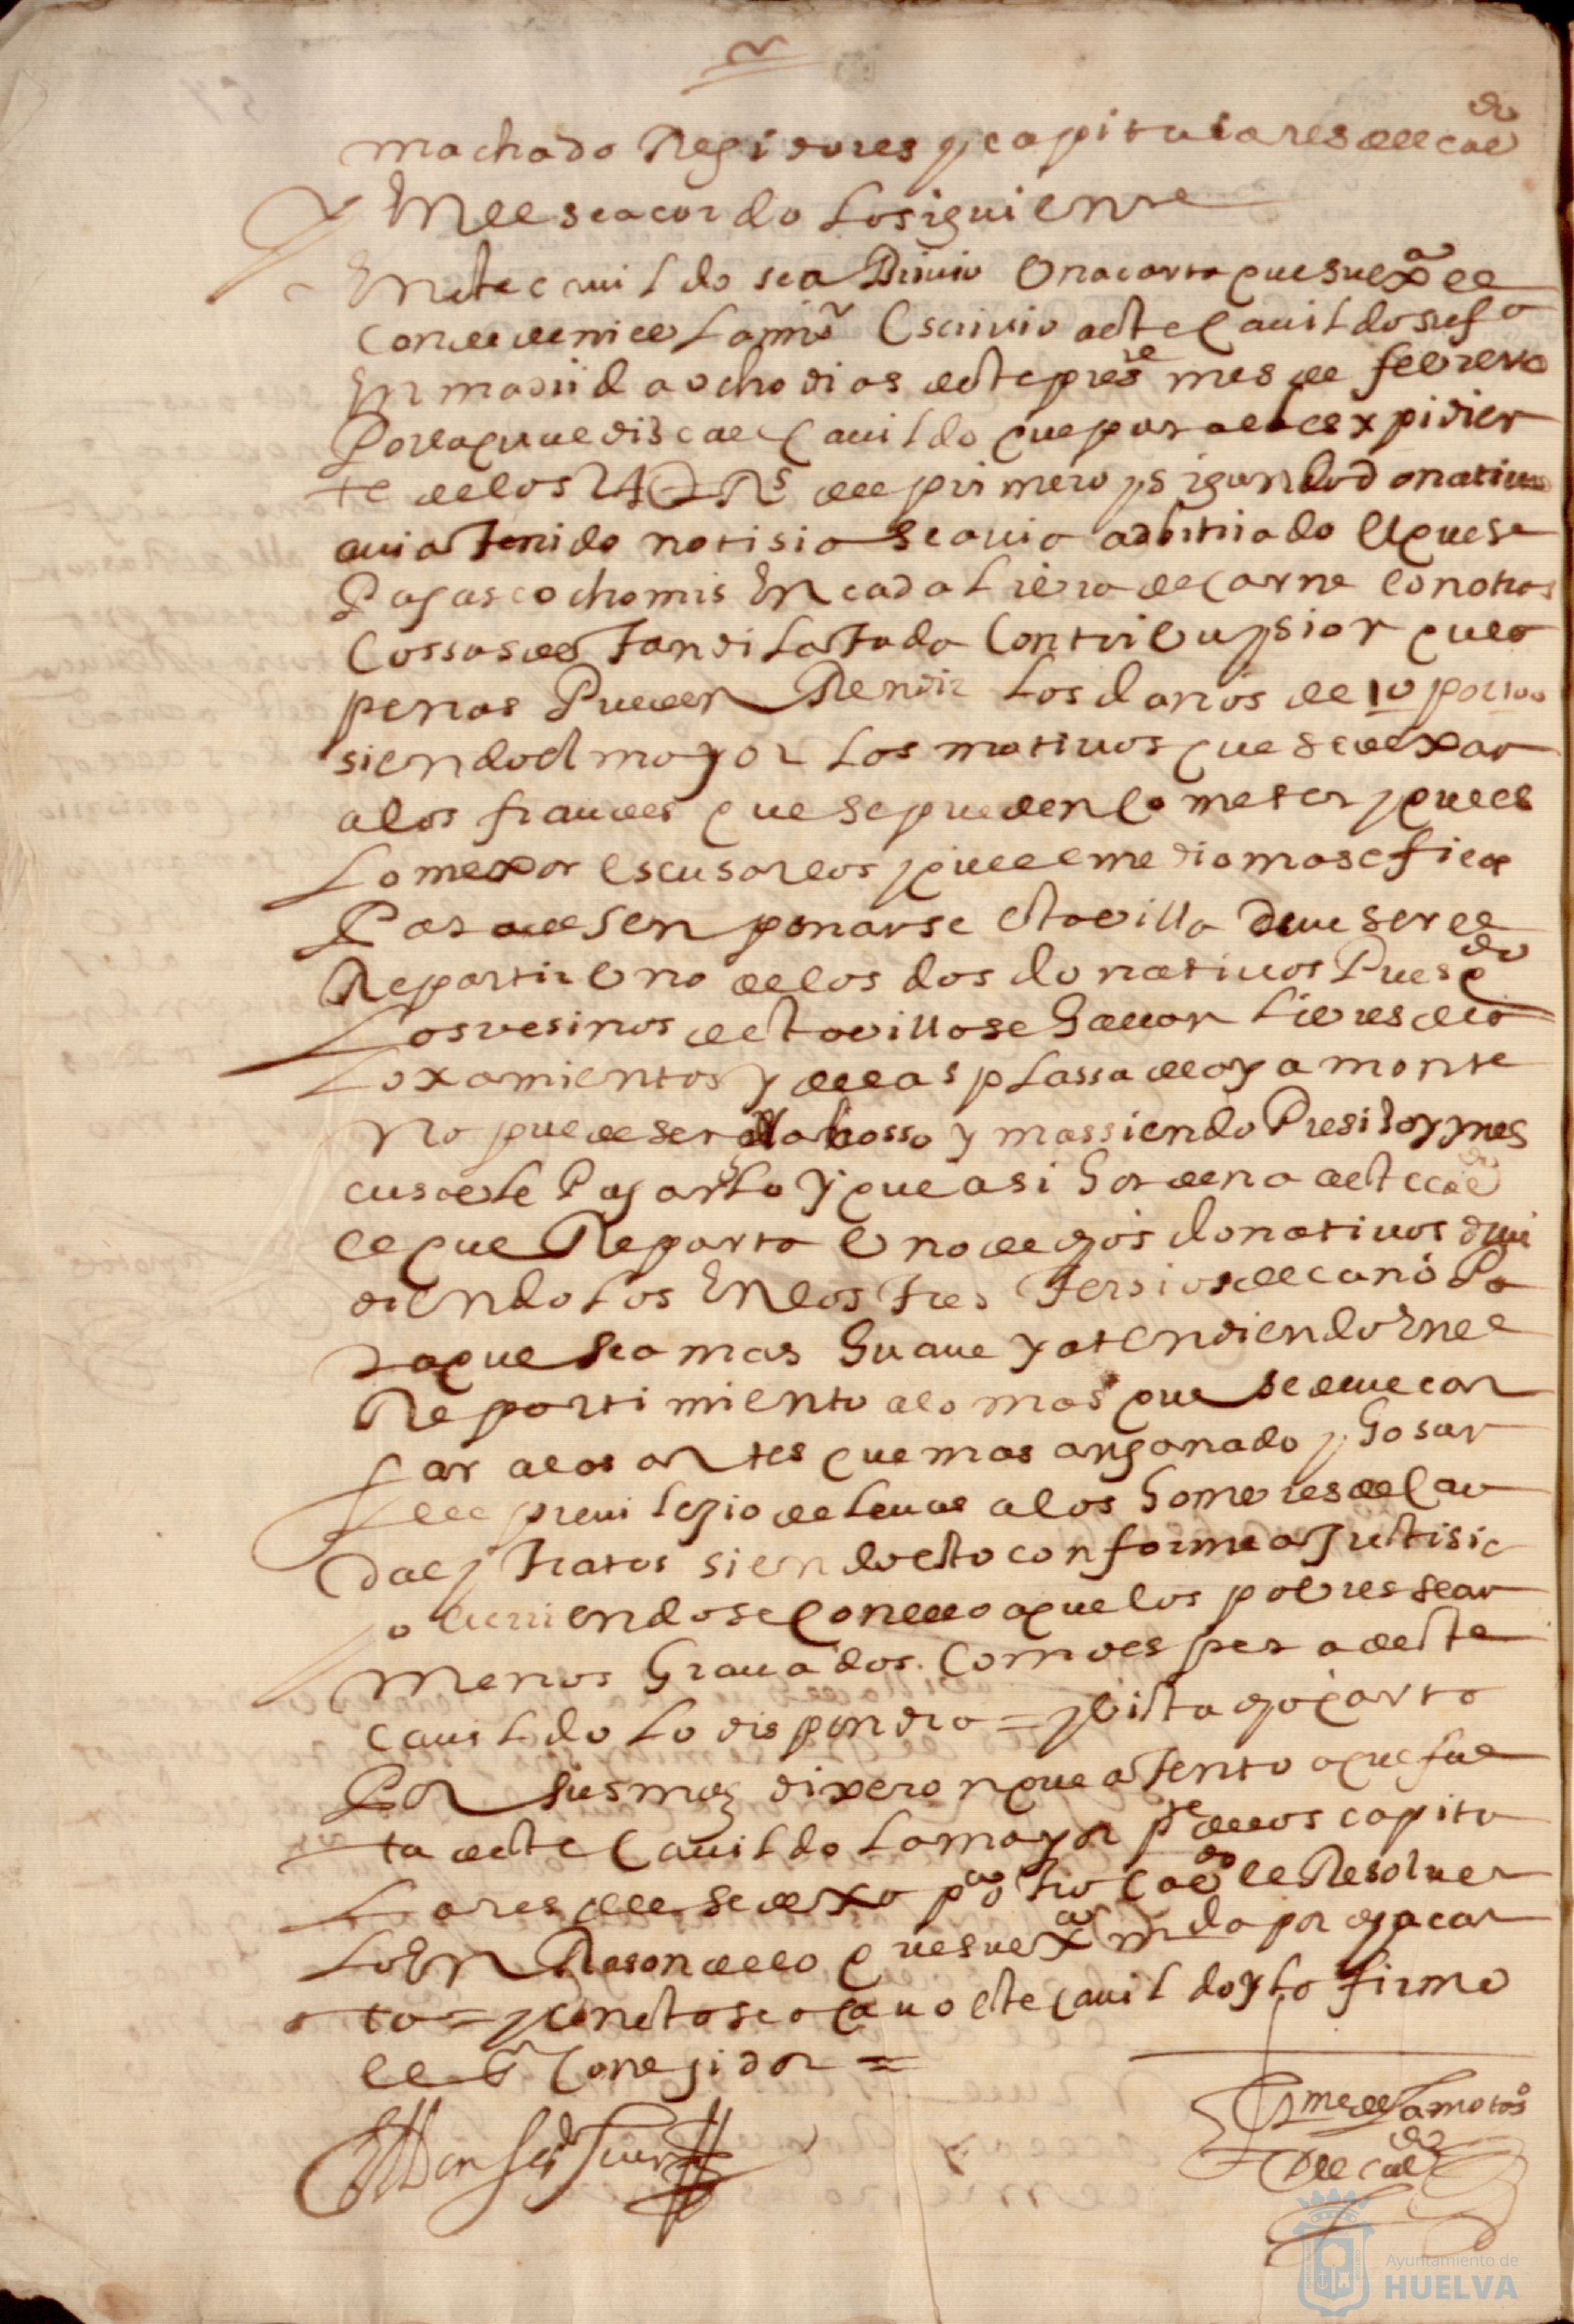 machado Regidores y capitulares del cav^do
En el se acordo lo siguiente
En este cavildo se a Rivio Una carta que su ex^a el
Conde de niebla mi s^r Escrivio a este Cavildo su f^a
En madrid a ocho dias deste pres^te mes de febrero
Por la que le dise al Cavildo que por el expidien
te de los 24U R^s del primero y segundo donativo
avia tenido notisia se avia adbitriado El que se
Pagase ocho mrs En cada Libra de Carne con otras
Cossas de tan dilatada Contribuysion que a
penas Pueden Rendir Los daños de 10 por 100
siendo el mayor Los motivos que se dexan
a los fraudes que se pueden cometer y que es
Lo mexor escusarlos y que el medio mas eficas
Para desenpeñarse esta villa deve ser el
Repartir Uno de los dos donativos Pues q^do
Los vesinos desta villa se hallan Libres de a
Loxamientos y de la plassa de ayamonte
No puede ser y mas siendo Presiso y ynes
cusable Pagarlo y que asi hordena a este cav^do
el que Reparta Uno de dhos donativos divi
diendolos En los tres tersios del año Pa
ra que sea mas suave y atendiendo En el
Repartimiento a lo mas que se deve car
gar a los que mas an ganado y gosan
del previlegio de a los hombres de Cau
dal y tratos siendo esto conforme a Justisia
a biniendose Con ello a que los pobres sean
Menos Gravados. Como espera deste
Cavildo Lo dispondra = y Vista dha Carta
Por sus mds dixeron que atento a que fal
ta deste Cavildo La mayor p^te de los capitu
Lares del se dexa p^a otro Cav^do el Resolver
Lo En Rason de lo que su ex^a m^da por dha car
ta = y Con esto se acavo este Cavildo y lo firmo
el s^r Corregidor =
Jm^e de Lamotos^o
del cav^do
Ayuntamiento de
HUELVA